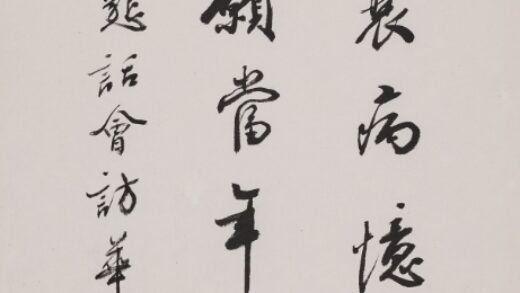 病憶
願當年
話會訪華